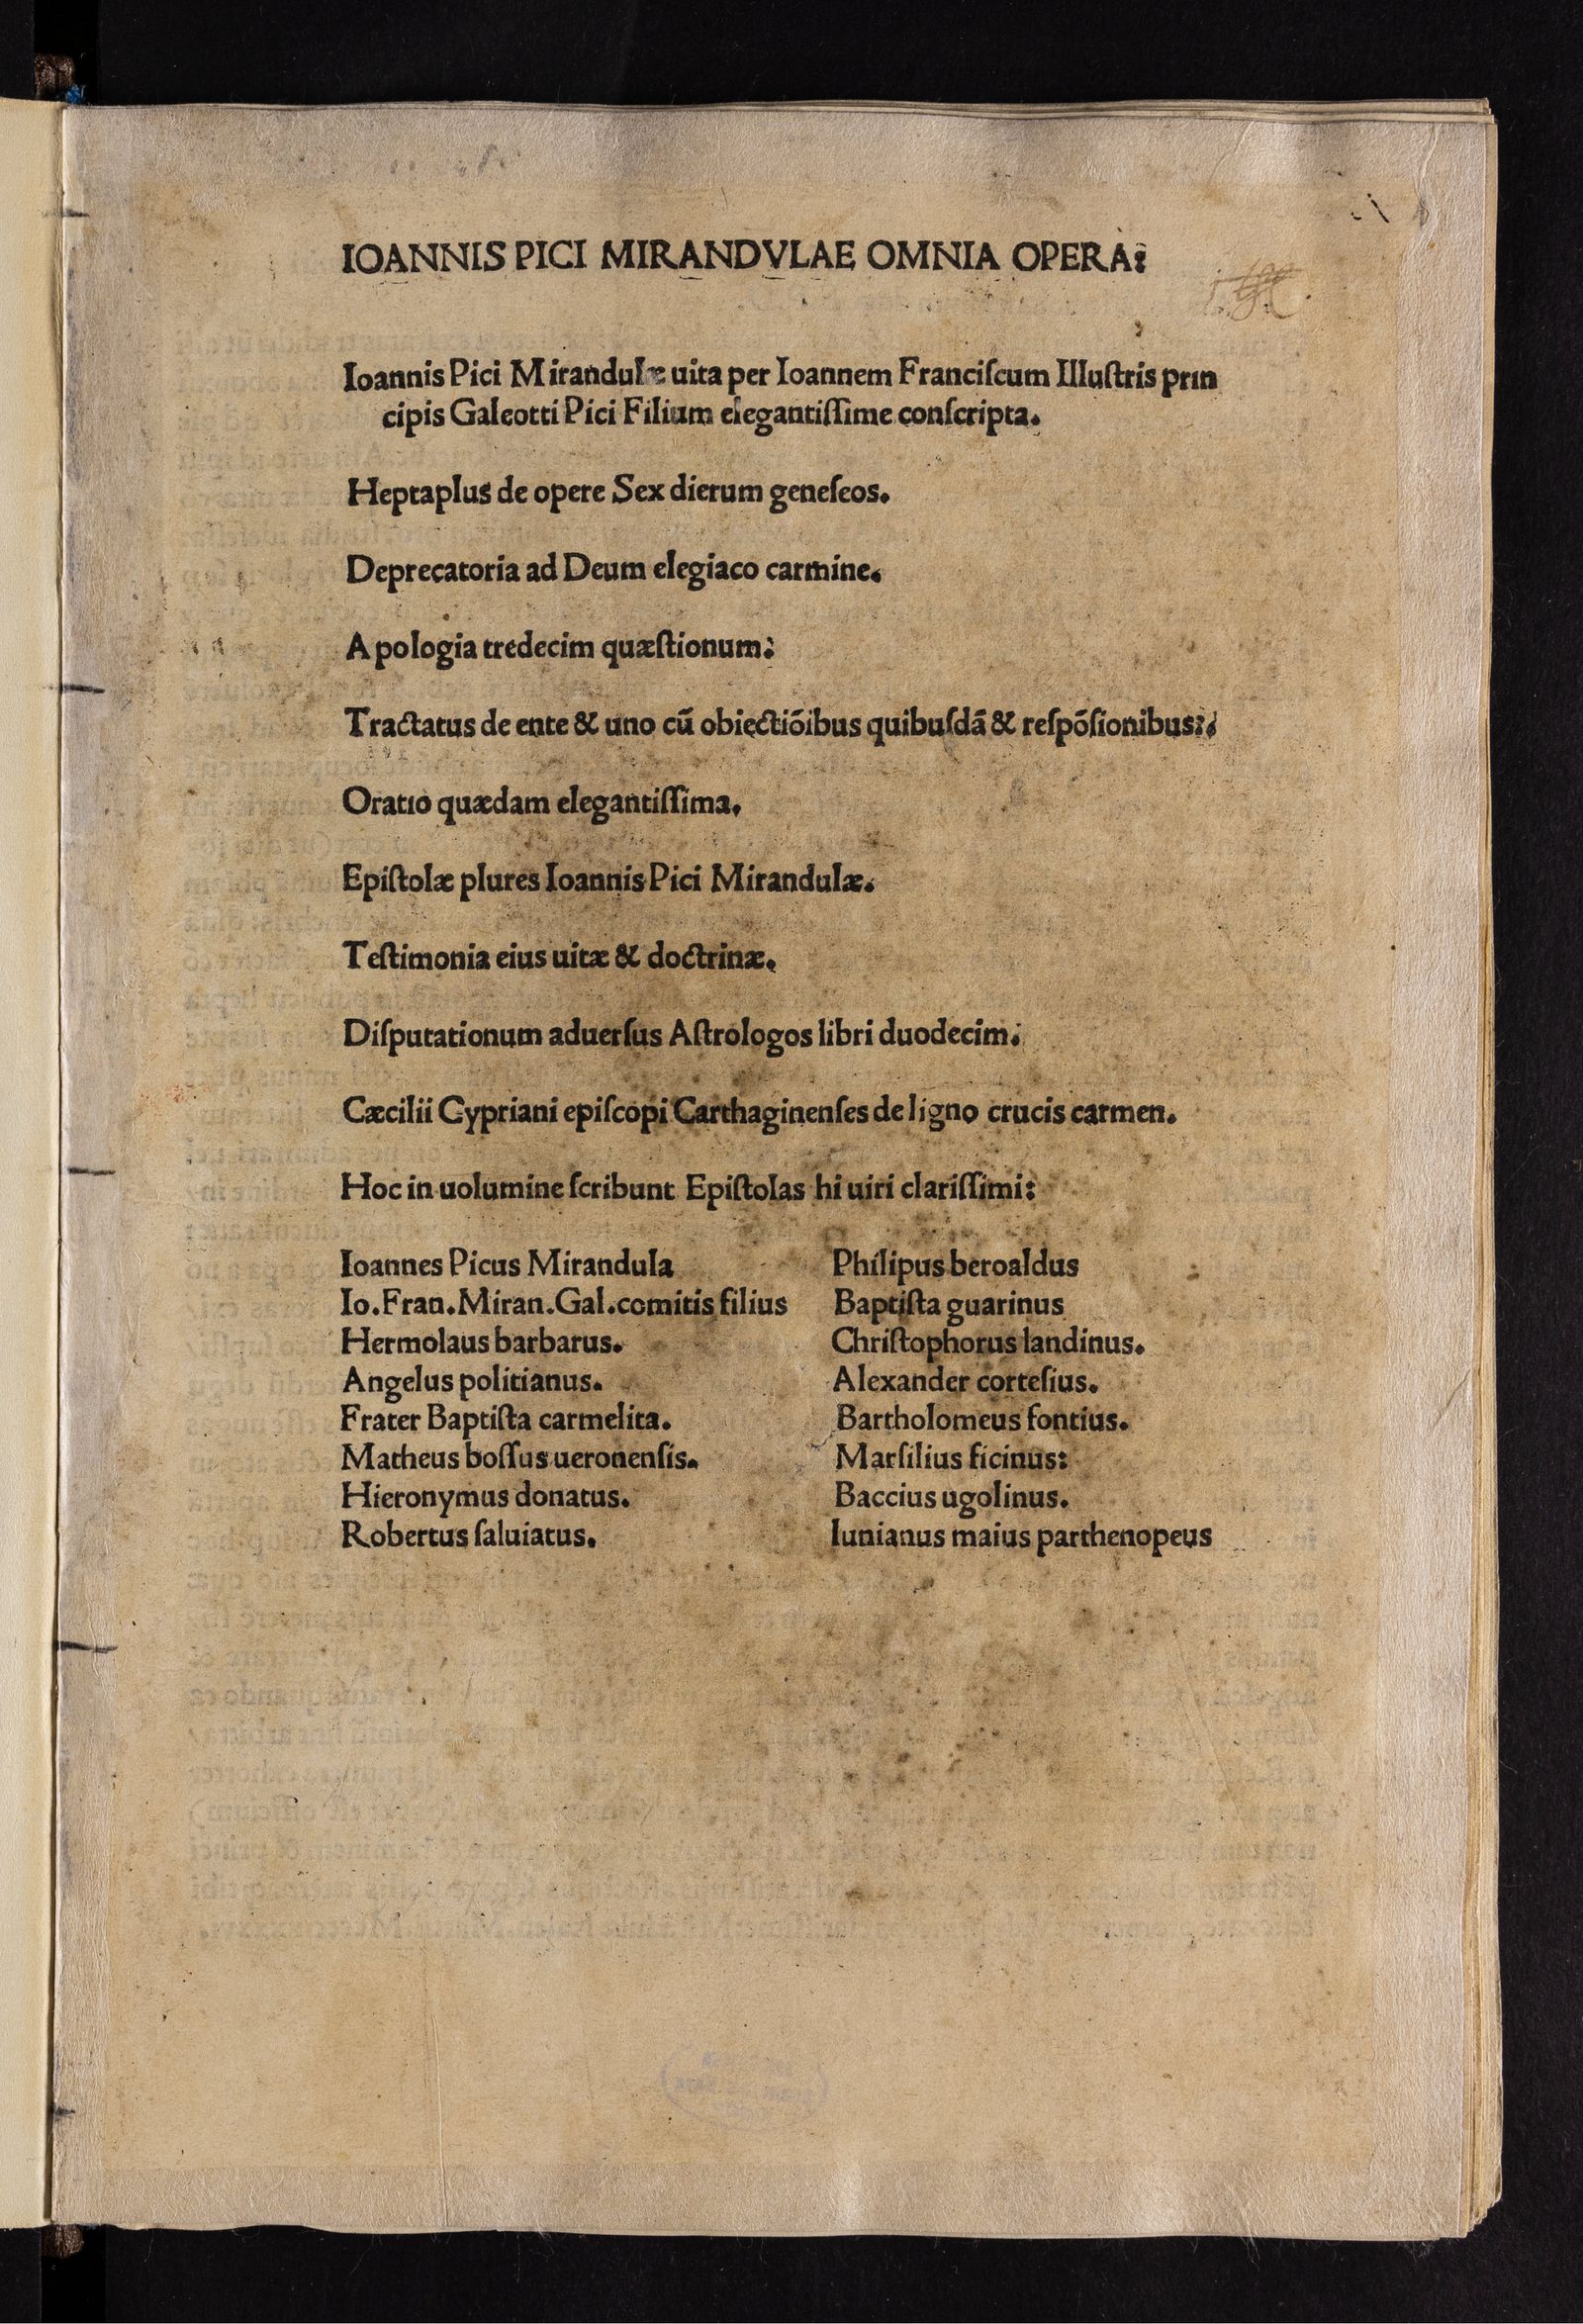 IOANNIS PICI MIRANDVLAE OMNIA OPERA:
Ioannis Pici Mirandulæ uita per Ioannem Franciſcum Illuſtris prin
cipis Galeotti Pici Filium elegantiſſime conſcripta.
Heptaplus de opere Sex dierum geneſeos.
Deprecatoria ad Deum elegiaco carmine.
Apologia tredecim quæſtionum:
Tractatus de ente & uno cū obiectiōibus quibuſdā & reſpōſionibus:
Oratio quædam elegantiſſima.
Epiſtolæ plures Ioannis Pici Mirandulæ.
Teſtimonia eius uitæ & doctrinæ.
Diſputationum aduerſus Aſtrologos libri duodecim.
Cæcilii Cypriani epiſcopi Carthaginenſes de ligno crucis carmen.
Hoc in uolumine ſcribunt Epiſtolas hi uiri clariſſimi:
Ioannes Picus Mirandula
Io.Fran.Miran.Gal.comitis filius
Hermolaus barbarus.
Angelus politianus.
Frater Baptiſta carmelita.
Matheus boſſus ueronenſis.
Hieronymus donatus.
Robertus ſaluiatus.
Philipus beroaldus
Baptiſta guarinus
Chriſtophorus landinus.
Alexander corteſius.
Bartholomeus fontius.
Marſilius ficinus:
Baccius ugolinus.
Iunianus maius parthenopeus